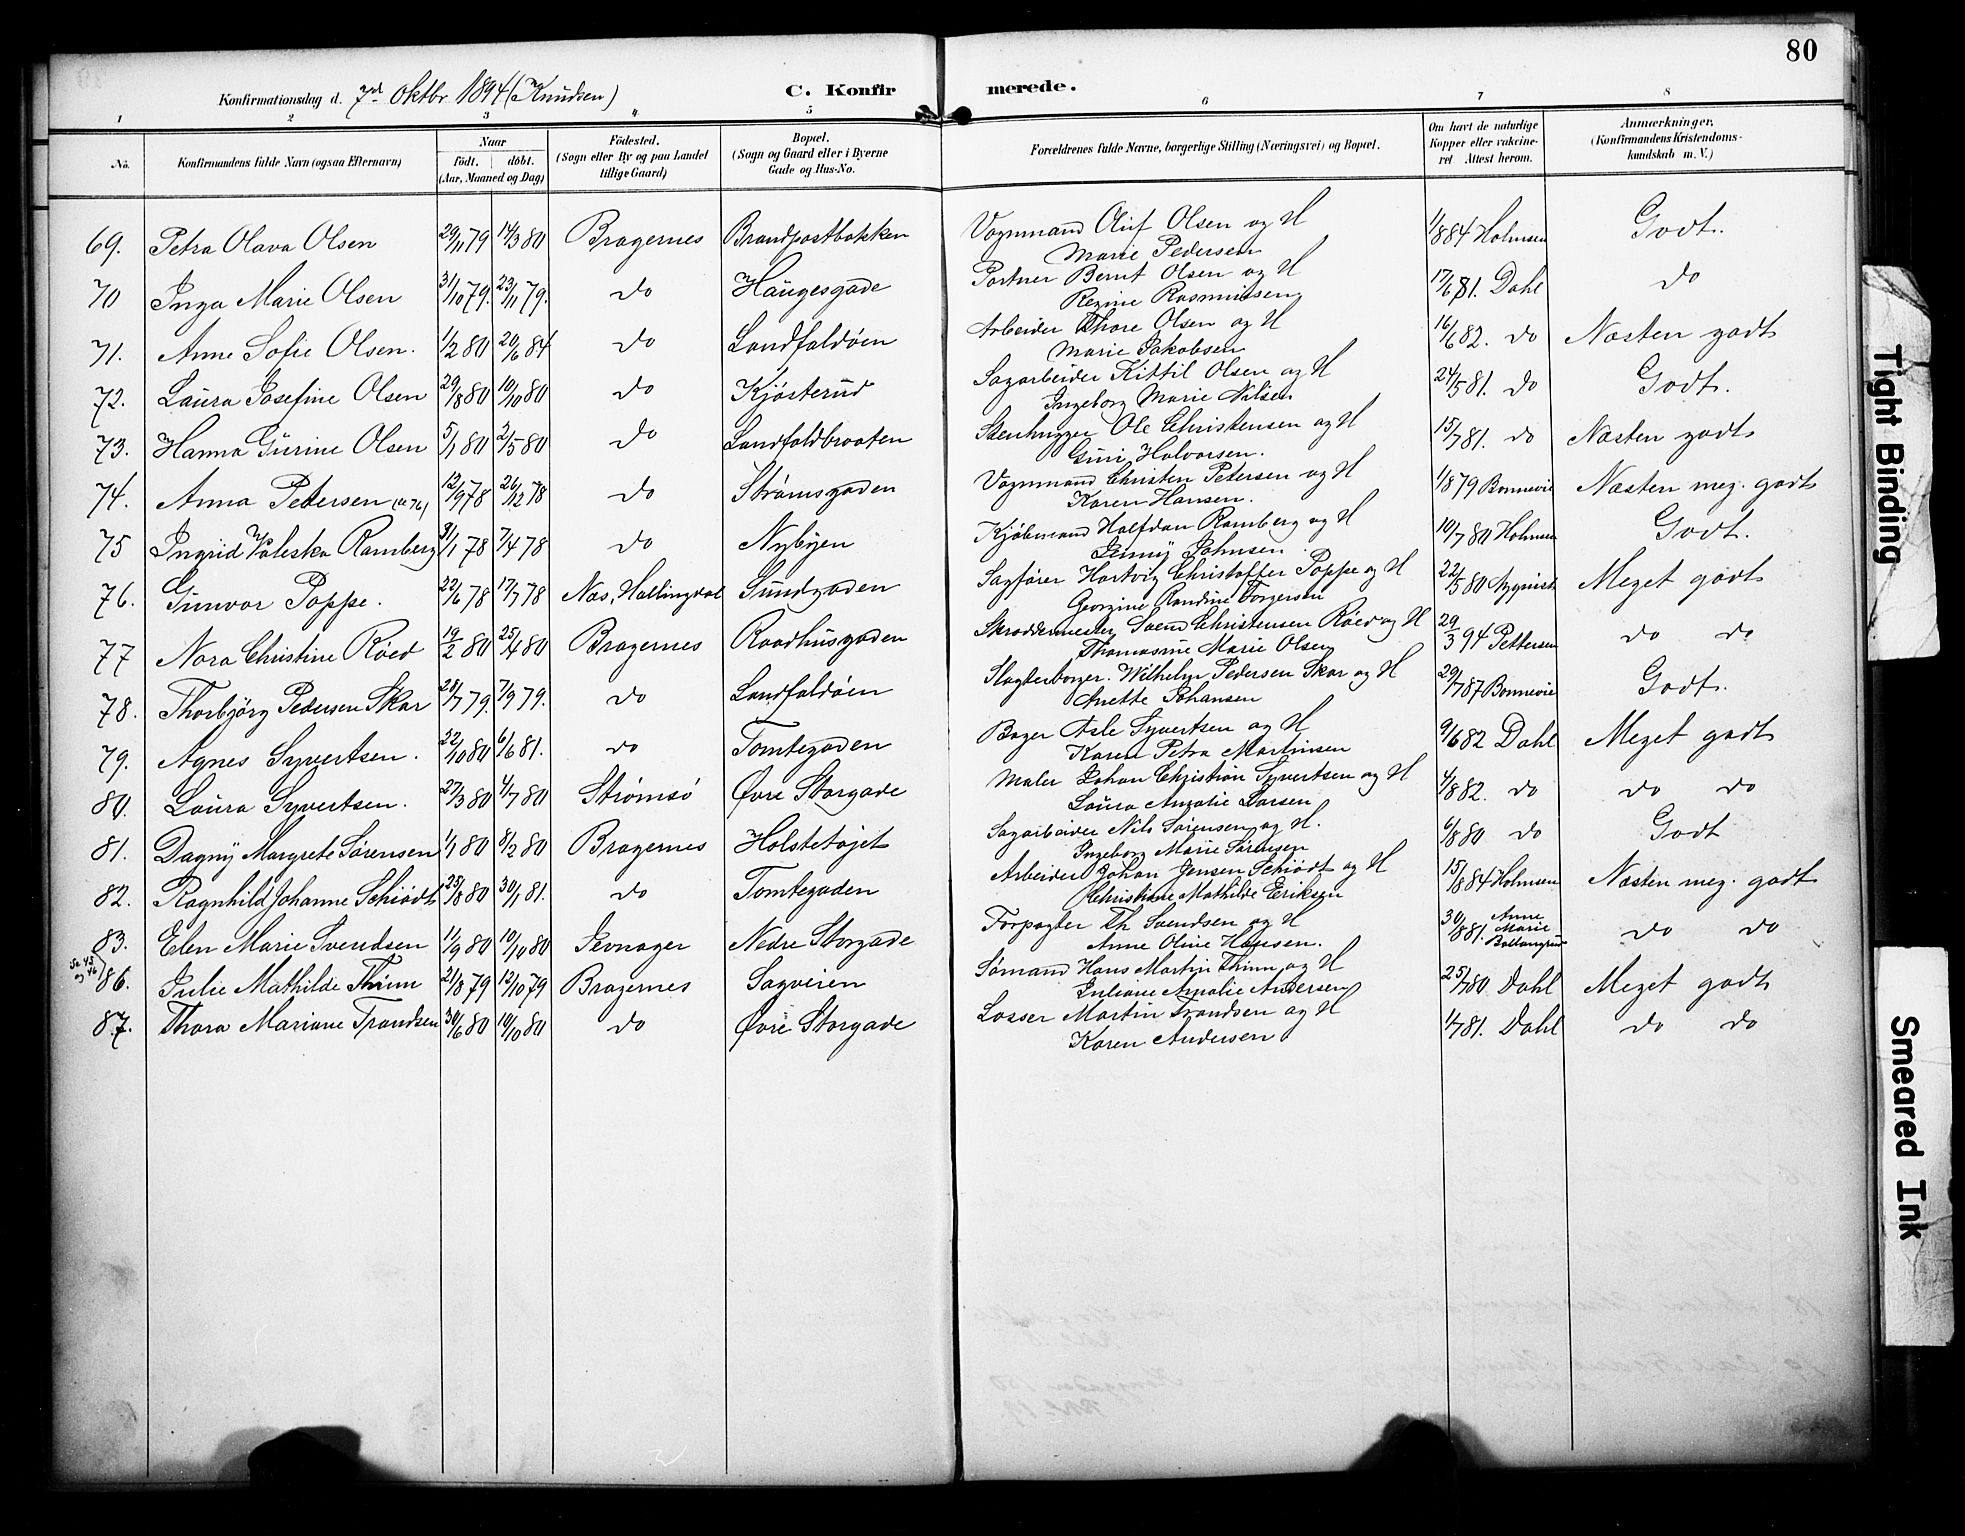 80
Konfirmationsdag d. 7de Oktbr. 1894 (Knudsen) C. Konfirmerede.
1 2 3 4 5 6 7 8
No. Konfirmandens fulde Navn (ogsaa Efternavn) Naar födt. döbt. (Aar, Maaned og Dag) Födested. (Sogn eller By og paa Landet tillige Gaard) Bopæl. (Sogn og Gaard eller i Byerne Gade og Hus-No. Forældrenes fulde Navne, borgerlige Stilling (Næringsvei) og Bopæl. Om havt de naturlige Kopper eller vakcineret Attest herom. Anmærkninger, (Konfirmandens Kristendomskundskab m. V.)
69. Petra Olava Olsen 29/11 79 14/3 80 Bragernes Brandpostbakken Vognmand Oluf Olsen og H Marie Pedersen 1/8 84 Holmsen Godt.
70 Inga Marie Olsen 31/10 79. 23/11 79. do Haugesgade Portner Bernt Olsen og H Regine Rasmussen 17/6 81. Dahl do
71. Anne Sofie Olsen. 1/2 80 20/6 84 do Landfaldøien Arbeider Thore Olsen og H Marie Jakobsen 16/6 82. do Næsten godt
72. Laura Josefine Olsen 29/8 80 10/10 80 do Kjøsterud Sagarbeider Kittil Olsen og H Ingeborg Marie Nilsen 24/5 81. do Godt.
73. Hanna Gurine Olsen 5/1 80 2/5 80 do Landfaldbraaten Stenhugger Ole Christensen og H Guri Halvorsen. 15/7 81. do Næsten godt
74. Anna Pedersen 12/9 78 26/12 78 do Strømsgaden Vognmand Christen Petersen og H Karen Hansen. 1/8 79 Bonnevie Næsten meg. godt
75 Ingrid Valeska Ramberg 31/1 78 7/4 78 do Nybyen Kjøbmand Halfdan Ramberg og H Jenny Johnsen 10/7 80 Holmsen Godt.
76. Gunvor Poppe. 22/6 78 17/7 78 Nas, Hallingdal Sundgaden Sagfører Hartvig Christoffer Poppe og H Georgine Randine Torgersen 22/5 80 Meget godt
77 Nora Christine Röed 19/2 80 25/4 80 Bragernes Raadhusgaden Skræddermester Svend Christensen Röed og H Thomasine Marie Olsen 29/3 94 Pettersen do do
78. Thorbjörg Pedersen Skar 28/7 79. 7/9 79. do Landfaldøien Slagterborger. Wilhelm Pedersen Skar og H Anette Johansen 29/7 87 Bonnevie Godt.
79. Agnes Syvertsen. 22/10 80 6/6 81. do Tomtegaden Bager Asle Syvertsen og H Karen Petra Martinsen 9/6 82 Dahl Meget godt
80. Laura Syvertsen. 27/3 80 4/7 80 Strømsö Øvre Storgade Maler Johan Christian Syvertsen og H Laura Amalie Larsen 4/8 82. do do do
81. Dagny Margrete Sørensen 1/1 80 8/2 80 Bragernes Holstetøjet Sagarbeider Nils Sørensen og H. Ingeborg Marie Sørensen 6/8 80 do Godt
82. Ragnhild Johanne Schiödt 25/8 80 30/1 81. do Tomtegaden Arbeider Johan Jensen Schiödt og H Christiane Mathilde Eriksen 15/8 84 Holmsen Næsten meg. godt
83. Elen Marie Svendsen 11/9 80 10/10 80 Jevnager Nedre Storgade Forpagter Th Svendsen og H Anne Oline Hansen. 30/8 81. Anne Marie do do
Se 45 og 46
86. Julie Mathilde Thinn 21/8 79 12/10 79 Bragernes Sagveien Sømand Hans Martin Thinn og H Juliane Amalie Andersen 25/7 80 Dahl Meget godt
87. Thora Mariane Trondsen 30/6 80 10/10 80 do Øvre Storgade Losser Martin Trondsen og H Karen Andersen 1/7 81. Dahl do do
Tight Binding
Smeared Ink